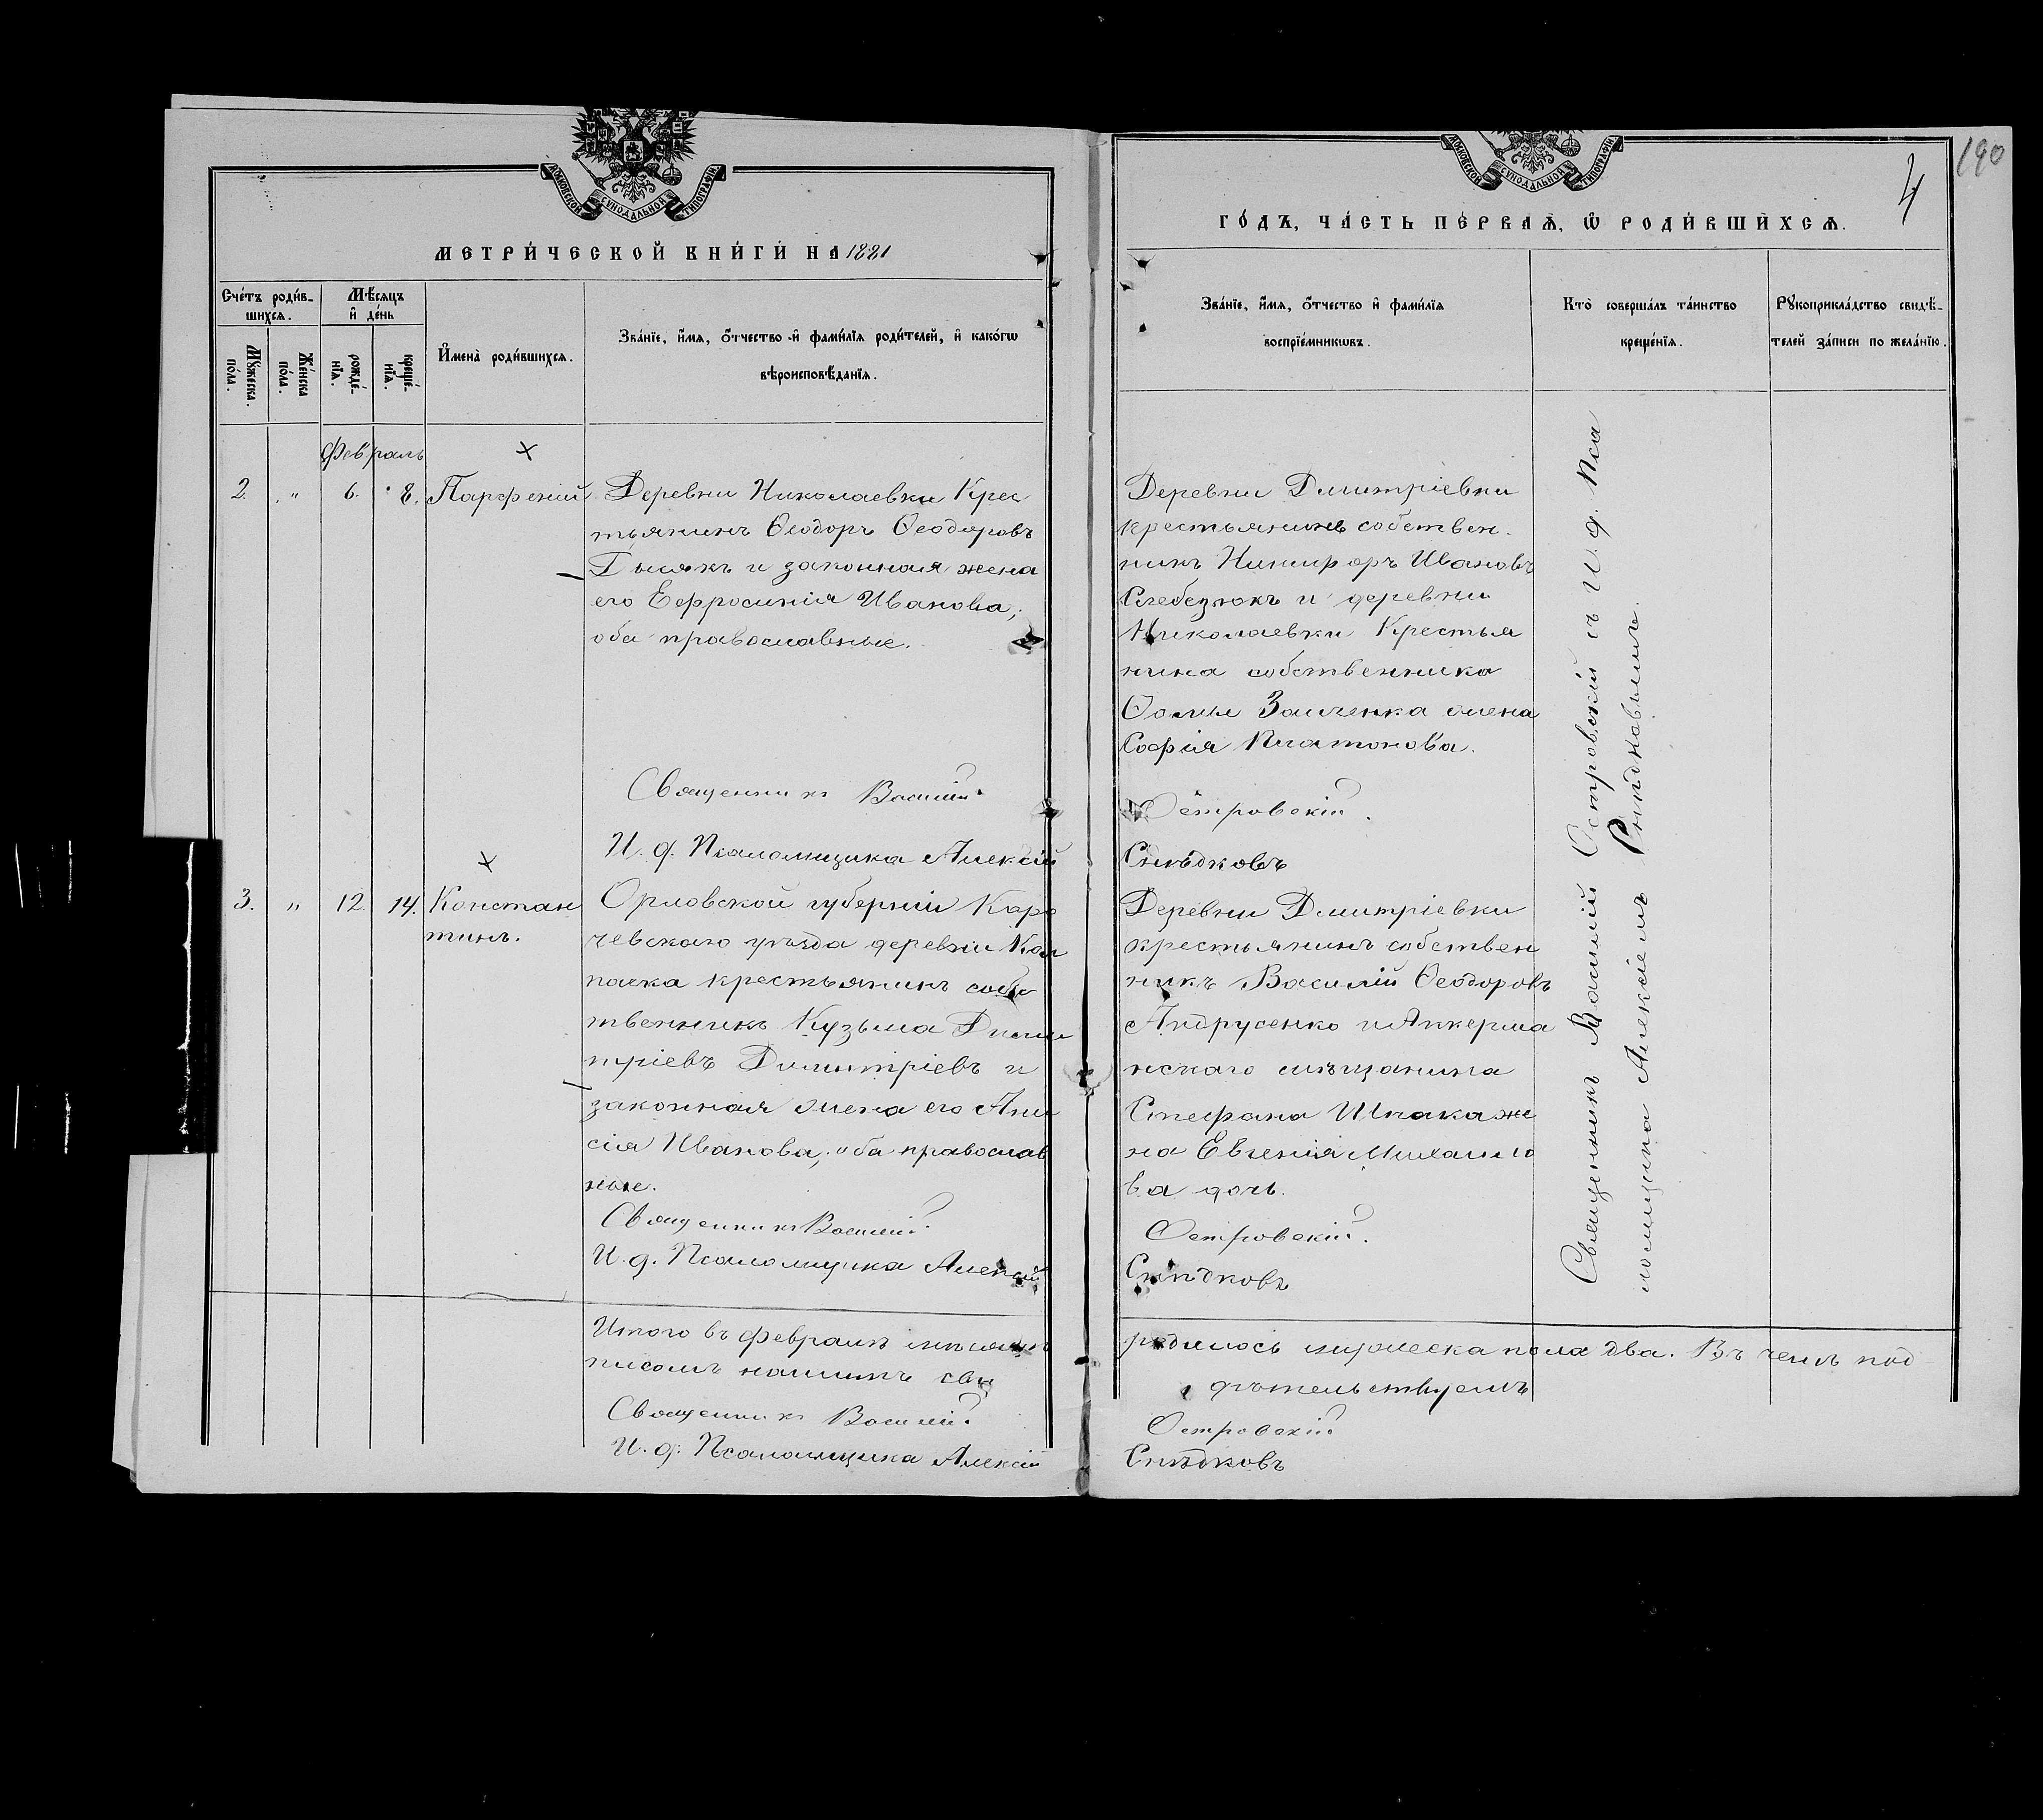 МОСКОВСКОЙ СѴНОДАЛЬНОЙ ТИПОГРАФІИ
МЕТРИ́ЧЕСКОЙ КНИ́ГИ НА 1881
Сче́тъ роди́в-
шихся.
Мѣ́сяцъ
и҆ де́нь
Мꙋ́жеска
по́ла.
Же́нска
по́ла.
рожде́-
нїя.
креще́-
нїя.
И҆мена̀ роди́вшихся.
Зва́нїе, и҆́мя, ѻ҆́тчество и҆ фами́лїя роди́телей, и҆ како́гѡ
вѣроисповѣ́данїя.
Февраль
2. " 6. 8. Парѳеній
Деревни Николаевки Крес
тьянинъ Ѳеодоръ Ѳеодоровъ
и законная жена
его Евфросинія Иванова,
оба православные.
Священникъ Василій
И. д. Псаломщика Алексій
3. " 12. 14. Констан
тинъ.
Орловской губерніи Кара
чевскаго уѣзда деревни Кол
пачка крестьянинъ собс
твенникъ Кузьма Дими
тріевъ Димитріевъ и
законная жена его Ани
сія Иванова, оба православ
ные.
Священникъ Василій
И. д. Псаломщика Алексій
Итого въ февралѣ мѣсяцѣ
писомъ нашимъ сви
Священникъ Василій
И. д. Псаломщика Алексій
190
4
МОСКОВСКОЙ СѴНОДАЛЬНОЙ ТИПОГРАФІИ
ГО́ДЪ, ЧА́СТЬ ПЕ́РВАЯ, Ѡ҆ РОДИ́ВШИХСЯ.
Зва́нїе, и҆́мя, ѻ҆́тчество и҆ фами́лїя
воспрїе́мникѡвъ.
Кто̀ соверша́лъ та́инство
креще́нїя.
Рꙋкоприкла́дство свидѣ́-
телей за́писи по жела́нїю.
Деревни Димитріевки
крестьянинъ собствен.
никъ Никифоръ Ивановъ
и деревни
Николаевки Крестья
нина собственника
Ѳомы Заиченка жена
Софія Платонова.
Островскій.
Снѣдковъ
Деревни Димитріевки
крестьянинъ собствен
никъ Василій Ѳеодоровъ
Андрусенко и Аккерма
нскаго мѣщанина
Стефана Шпака же
на Евгенія Михайло
ва дочь.
Островскій.
Снѣдковъ
Священникъ Василій Островскій съ И. д. Пса
ломщика Алексіемъ Снѣдковымъ.
родилось мужеска пола два. Въ чемъ под
дѣтельствуемъ
Островскій
Снѣдковъ